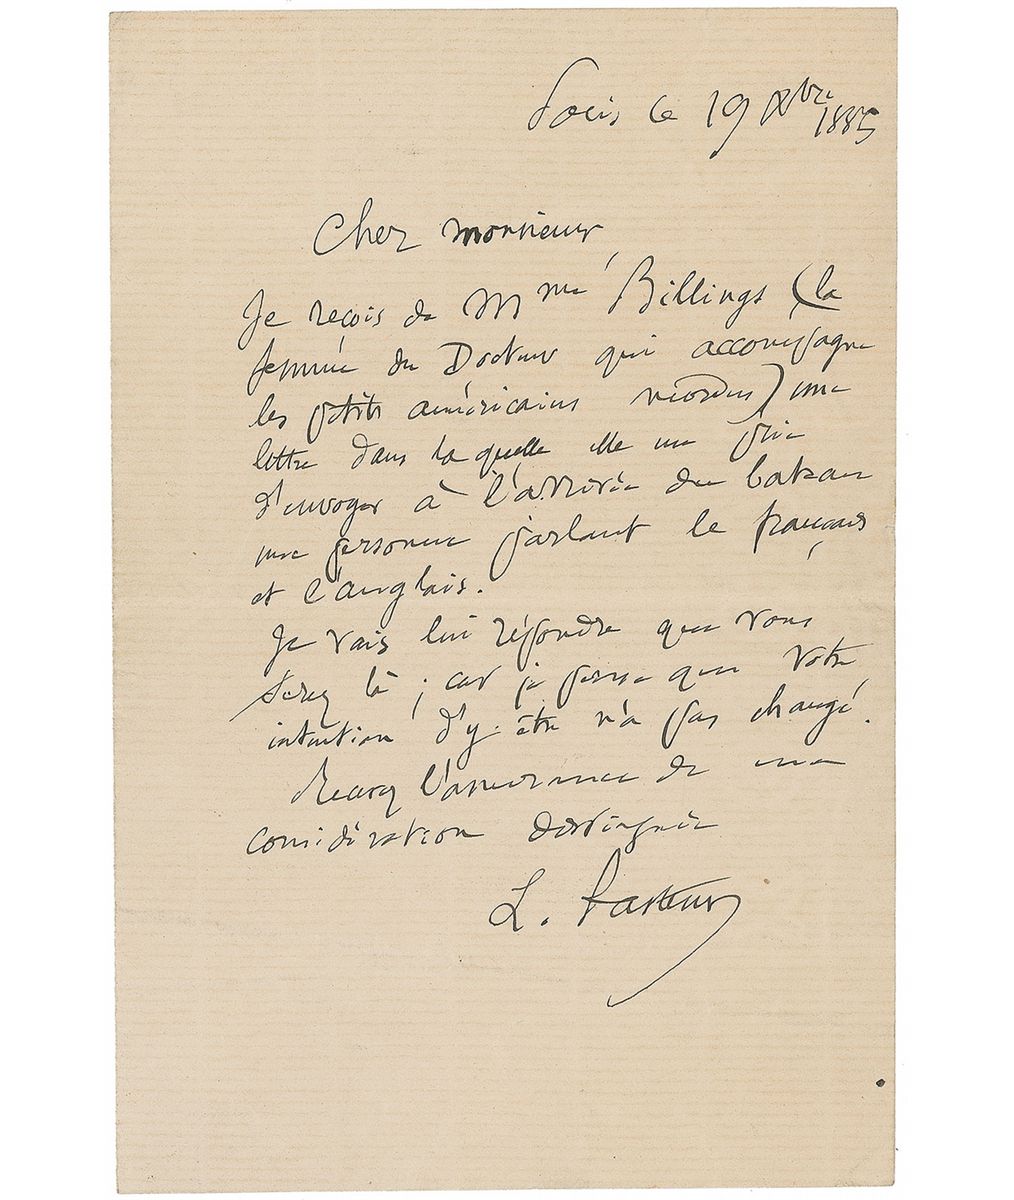 Paris le 19 Xbre
1885
Cher monsieur,
Je reçois de Mme Billings (la
femme du Docteur qui accompagne
les petits américains mordus) une
lettre dans la quelle elle me prie
d'envoyer à l'arrivée du bateau
une personne parlant le français
et l'anglais.
Je vais lui répondre que vous
serez là ; car je pense que votre
intention d'y être n'a pas changé.
Recevez l'assurance de ma
considération distinguée
L. Pasteur